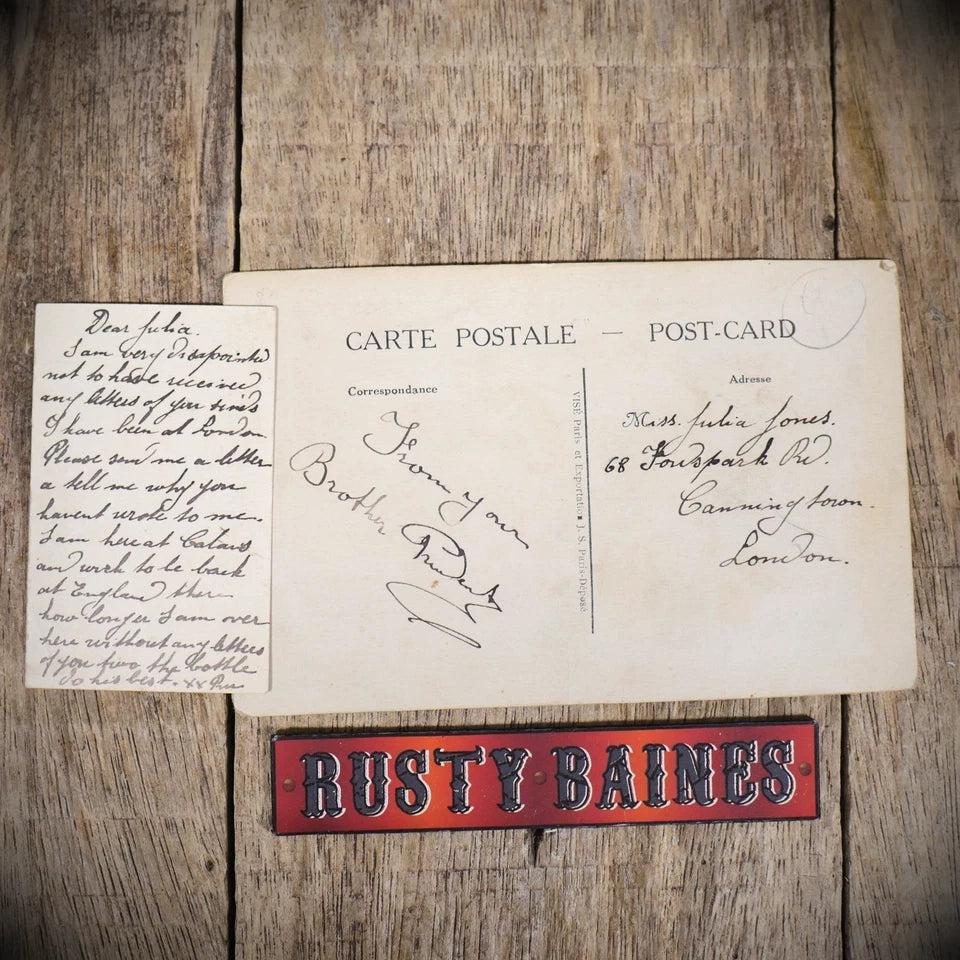 Dear Julia.
I am very disapointed
not to have received
any letters of you sinds
I have been at London
Please send me a letter
a tell me why you
havent wrote to me.
I am here at Calais
and wich to be back
at England there
how longer I am over
here without any letters
of you two the bottle
do his best. xx
CARTE POSTALE — POST-CARD
Correspondance
Adresse
From your
Brother
VISÉ Paris et Exportation J. S. Paris-Déposé
Miss. Julia Jones.
68 Fordspark Rd.
Canningtown.
London.
RUSTY BAINES